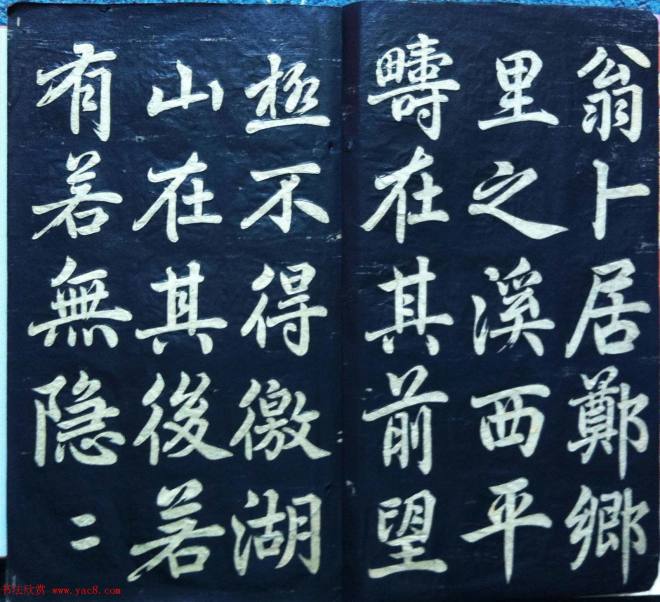 翁卜居鄭鄉
里之溪西平
疇在其前望
極不得微湖
山在其後若
有若無隐〻
书法欣赏 www.yac8.com